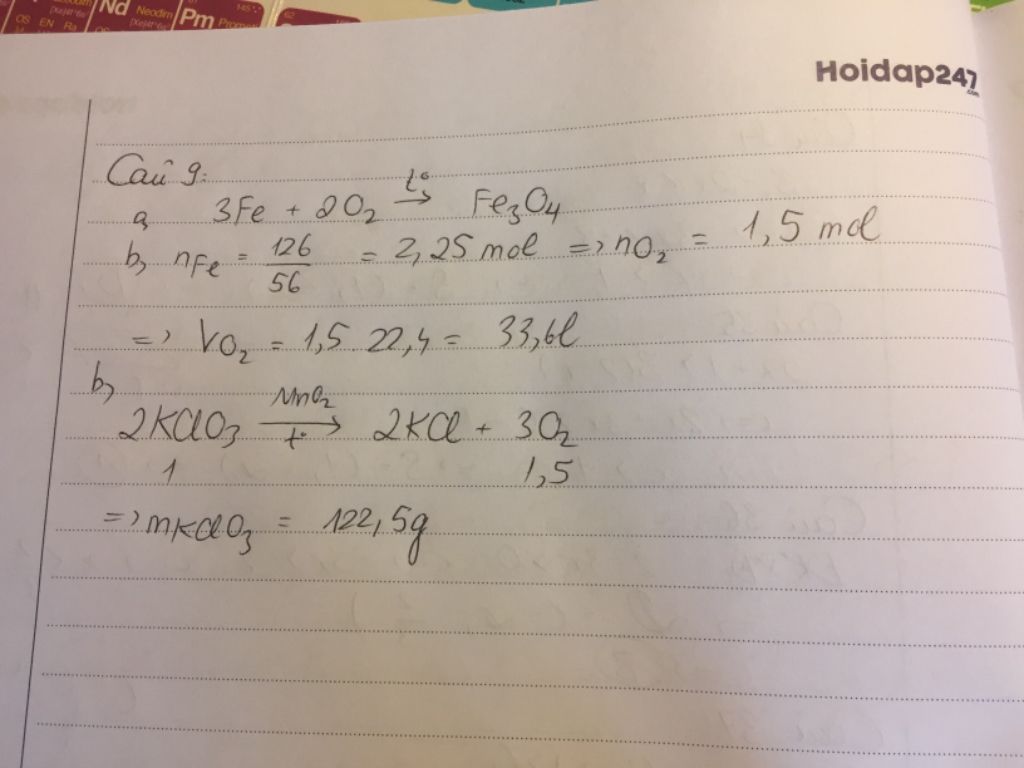 Nd Neodim
Pm
62
Hoidap247
.com
Câu 9:
a, 3Fe + 2O2 t° → Fe3O4
b, nFe = 126/56 = 2,25 mol => nO2 = 1,5 mol
=> VO2 = 1,5.22,4 = 33,6l
b,
2KClO3 MnO2 → t° 2KCl + 3O2
1 1,5
=> mKClO3 = 122,5g